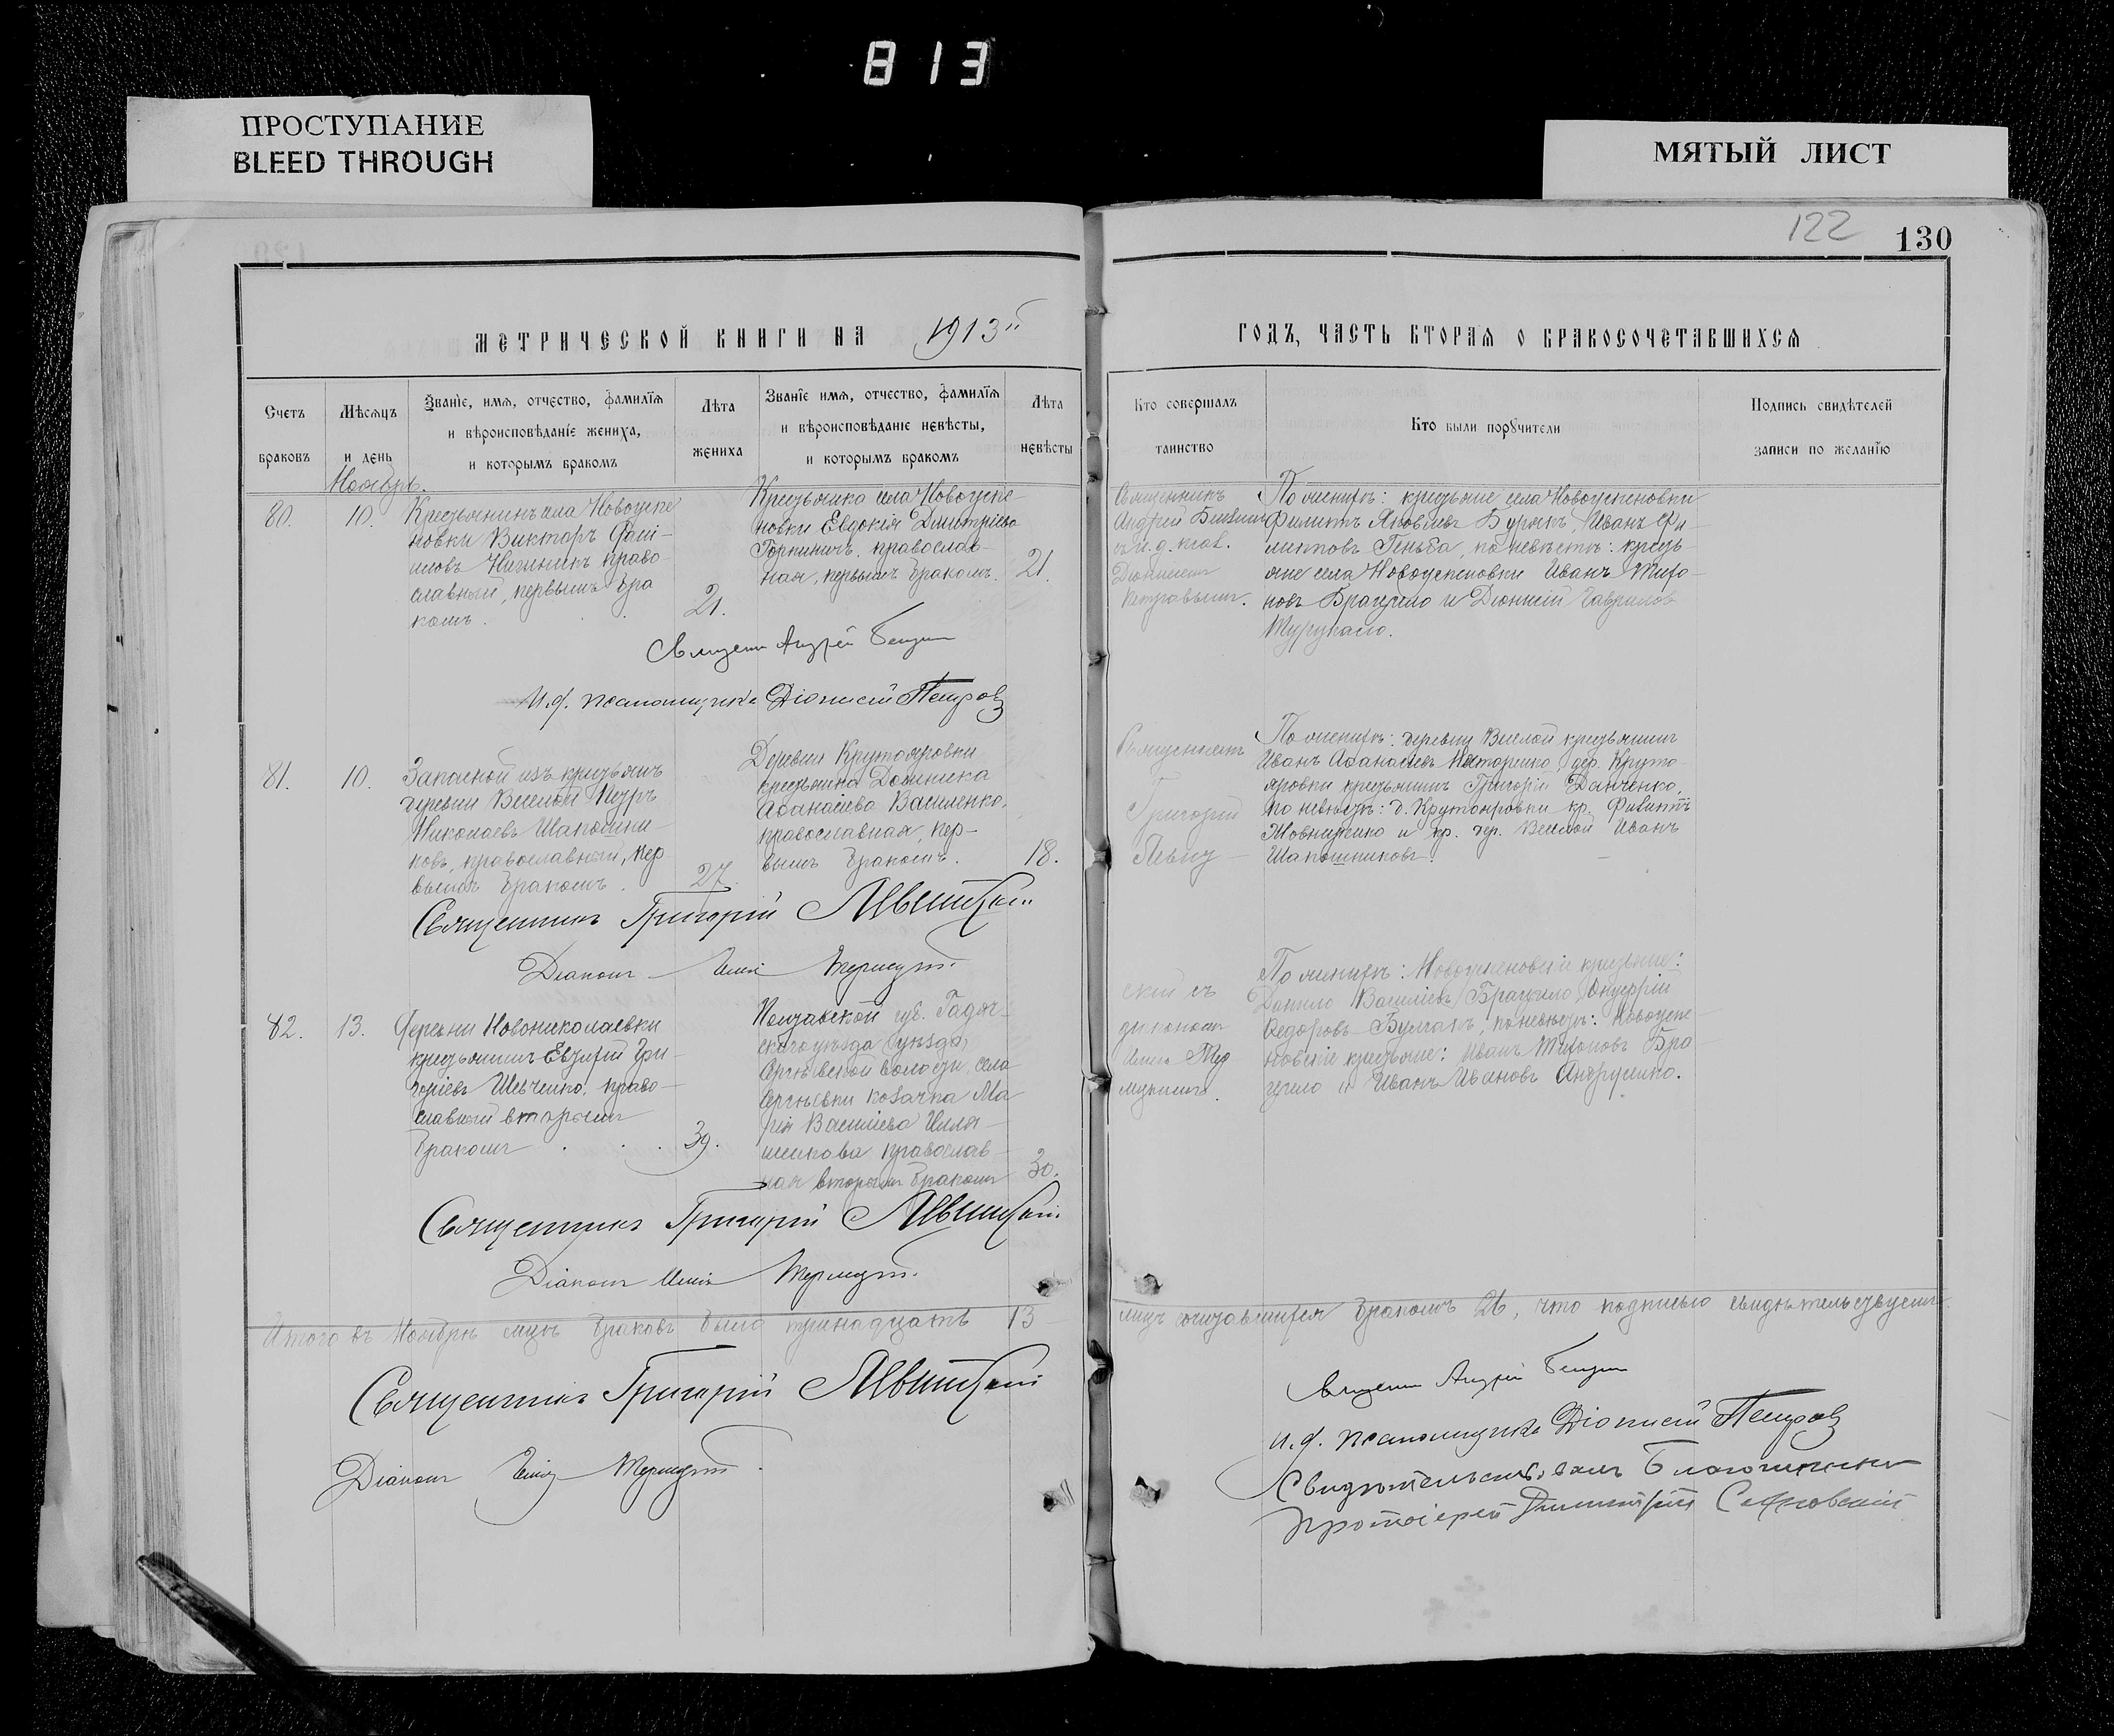 813
ПРОСТУПАНИЕ
BLEED THROUGH
МЯТЫЙ ЛИСТ
122
130
МЕТРИЧЕСКОЙ КНИГИ НА 1913
ГОДЪ, ЧАСТЬ ВТОРАЯ О БРАКОСОЧЕТАВШИХСЯ
Счетъ
браковъ
Мѣсяцъ
и день
Званіе, имя, отчество, фамилія
и вѣроисповѣданіе жениха,
и которымъ бракомъ
Лѣта
жениха
Званіе имя, отчество, фамилія
и вѣроисповѣданіе невѣсты,
и которымъ бракомъ
Лѣта
невѣсты
Кто совершалъ
таинство
Кто были поручители
Подпись свидѣтелей
записи по желанію
Ноябрь.
80.
10.
Крестьянинъ села Новоуспе
новки Викторъ
право-
славный, первымъ бра
комъ.
21.
Крестьянка села Новоуспе-
новки Евдокія Дмитріева
православ-
ная, первымъ бракомъ.
21.
Священникъ
Андрей
и.д. псал.
Діонисіем
Петровымъ.
По женихѣ: крестьяне села Новоуспеновки
Филиппъ Яковлевъ Бурякъ, Иванъ Фи-
липповъ по невѣстѣ: кресть-
яне села Новоуспеновки Иванъ Тихо-
новъ Брацило и Діонисій Гаврилов
Священн Андрей
И.д. псаломщика Діонисій Петровъ
81.
10.
Запасной изъ крестьянъ
деревни Веселой Петръ
Николаевъ Шапошни-
ковъ, православный, пер
вымъ бракомъ.
27.
Деревни Крутояровки
крестьянка Домника
Аѳанасіева Василенко,
православная, пер-
вымъ бракомъ.
18.
Священникъ
Григорій
По женихѣ: деревни Веселой крестьянин
Иванъ Аѳанасіевъ Нестеренко дер. Круто-
яровки крестьянинъ Григорій Данченко,
по невѣстѣ: д. Крутояровки кр. Филиппъ
и кр. дер. Веселой Иванъ
Шапошниковъ.
Священникъ Григорій
Діаконъ
82.
13.
Деревни Новониколаевки
крестьянинъ Евдокій Гри-
горіевъ Шевченко, право-
славный вторымъ
бракомъ
39.
Полтавской губ. Гадяч-
скаго уѣзда (уѣзда)
Сергѣевской волости, села
Сергѣевки козачка Ма
рія Василіева
православ-
ная вторымъ бракомъ
30.
скій съ
діакономъ
По женихѣ: Новоуспеновскіе крестьяне:
Данило Василіевъ Брацило, Онуфрій
Ѳедоровъ по невѣстѣ: Новоуспе-
новскіе крестьяне: Иванъ Тихоновъ Бра-
цило и Иванъ Ивановъ Андрусенко.
Священникъ Григорій
Діаконъ
Итого въ Ноябрѣ мцѣ браковъ было тринадцать 13
лицъ сочетавшихся бракомъ 26, что подписью свидѣтельствуемъ.
Священникъ Григорій
Діаконъ
Священн Андрей
и.д. псаломщика Діонисій Петровъ
Свидѣтельствовалъ Благочинный
Протоіерей Димитрій